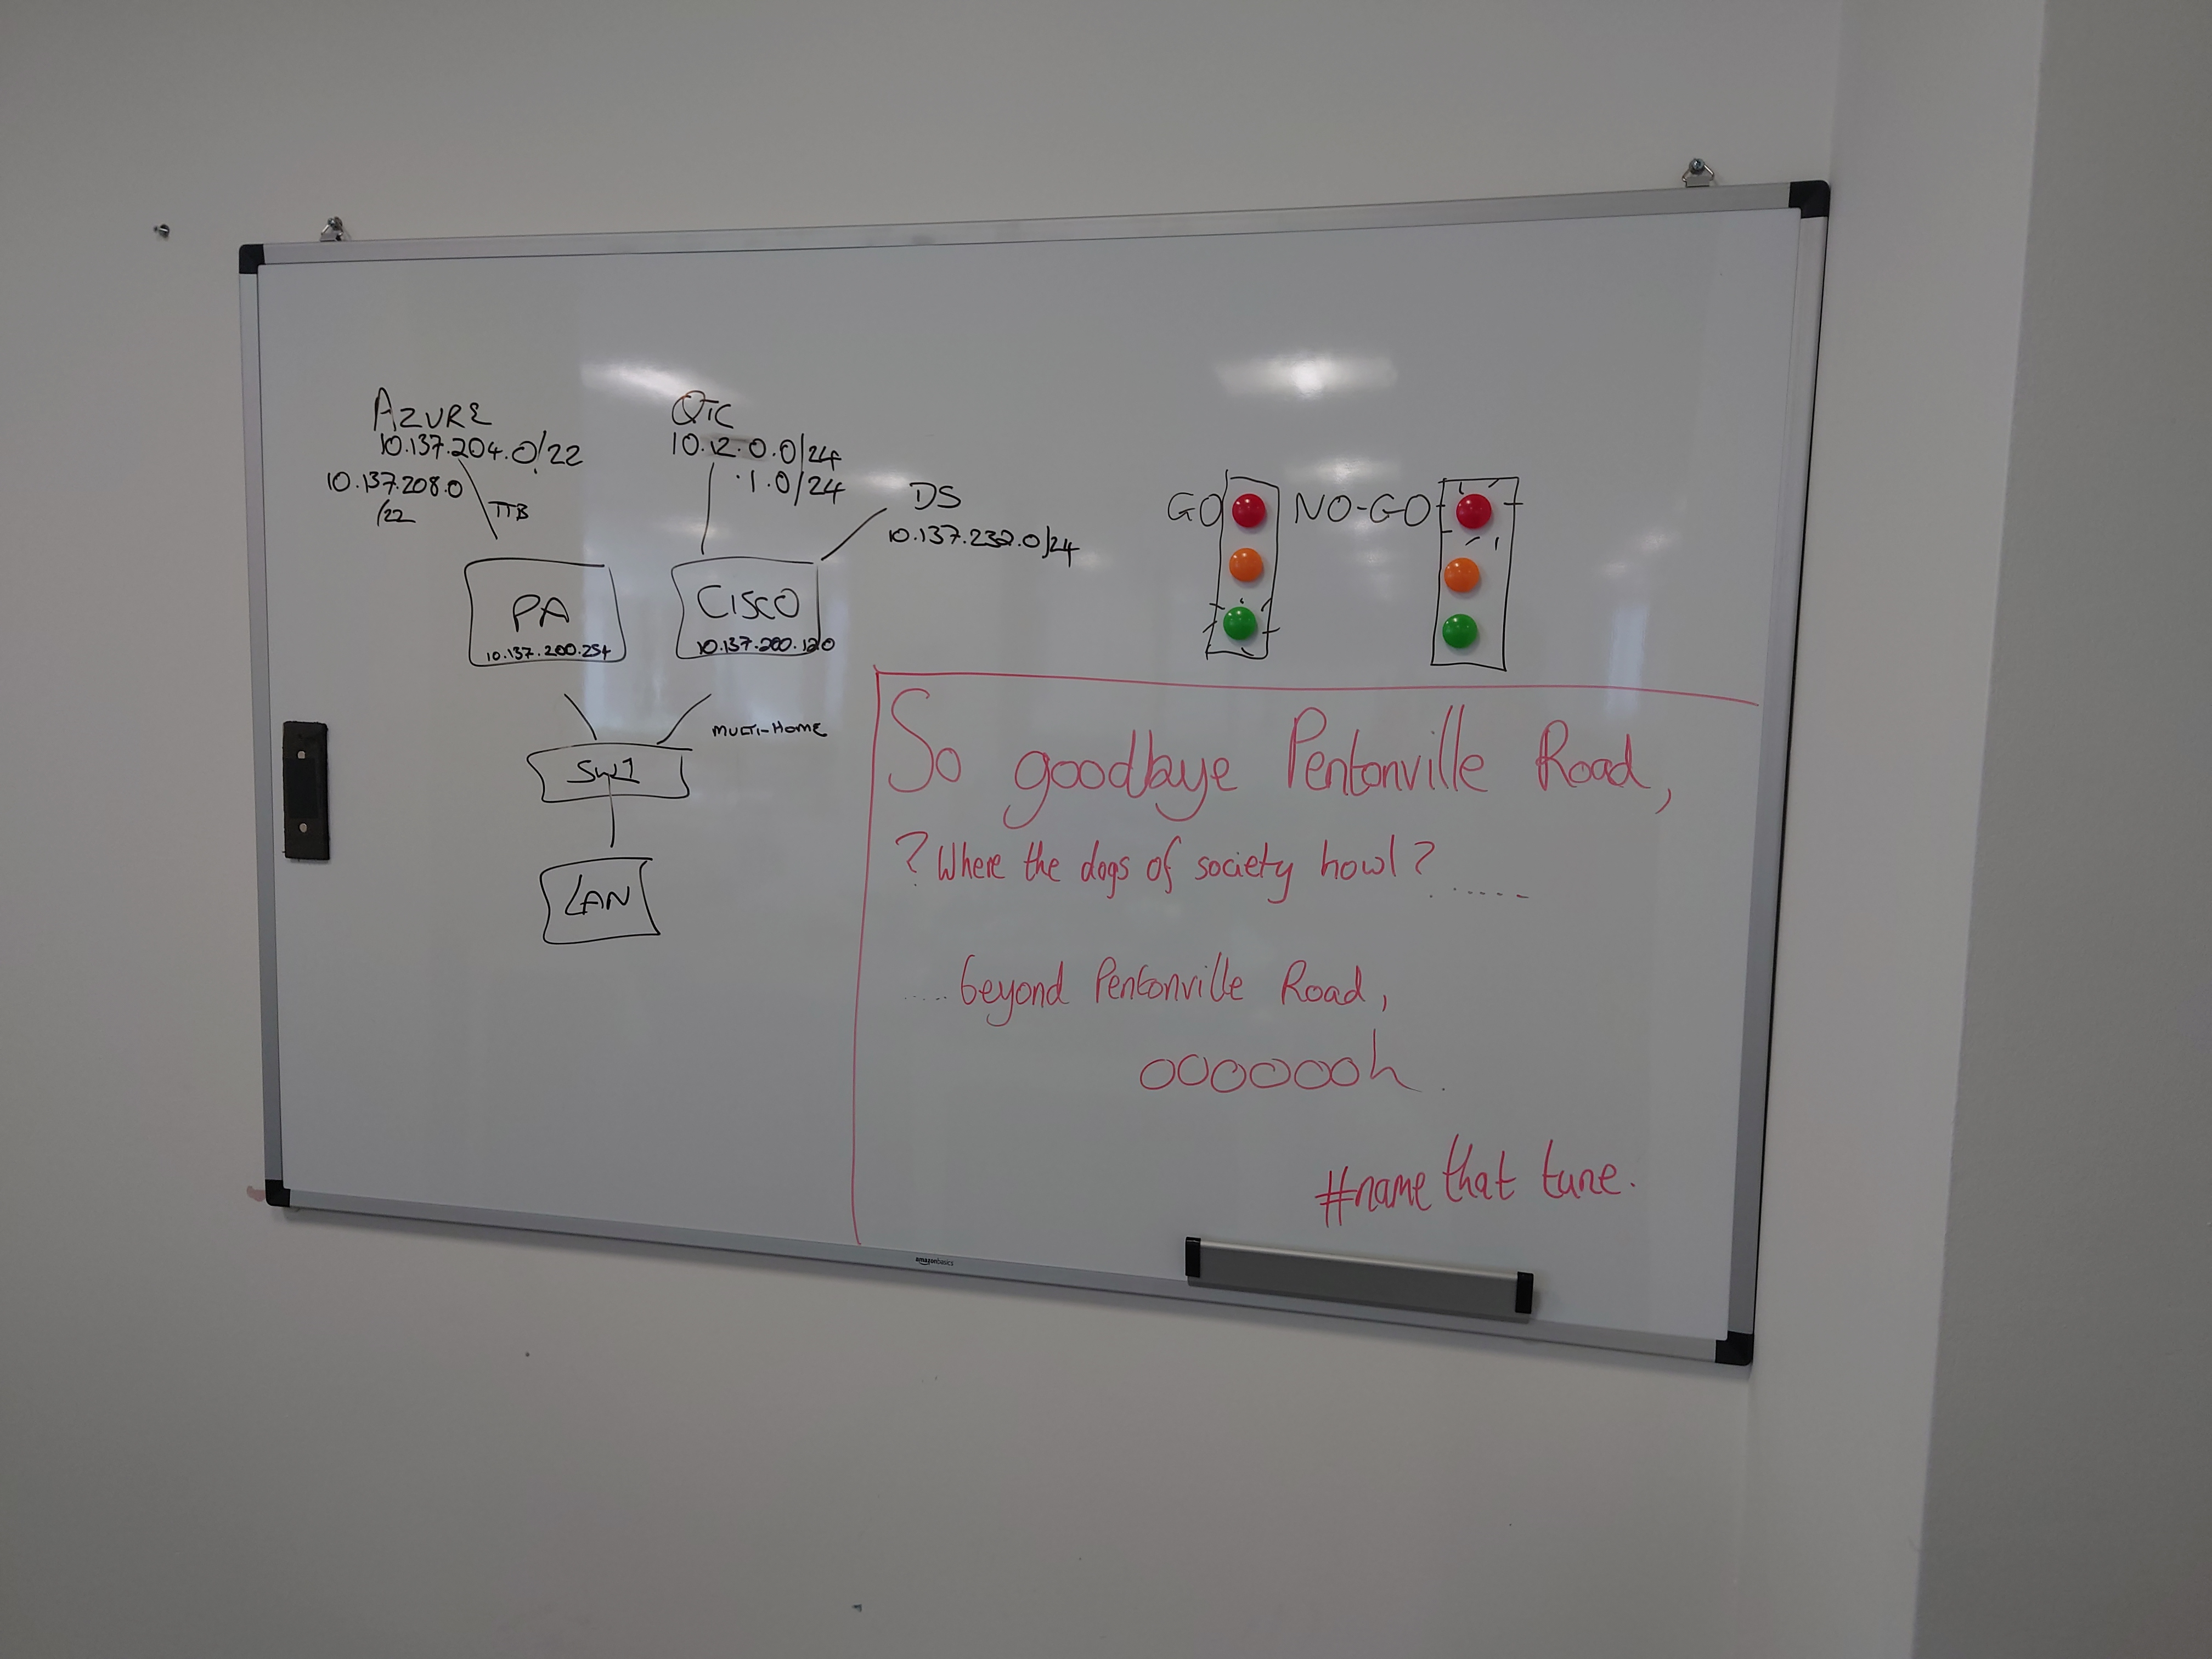 AZURE
10.137.204.0/22
10.137.208.0
/22
TTB
QTC
10.12.0.0/24
.1.0/24
DS
10.137.232.0/24
PA
10.137.200.254
CISCO
10.137.200.120
MULTI-HOME
SW1
LAN
GO
NO-GO
So goodbye Pentonville Road,
? Where the dogs of society howl? ......
..... beyond Pentonville Road,
ooooooh.
#name that tune.
amazonbasics